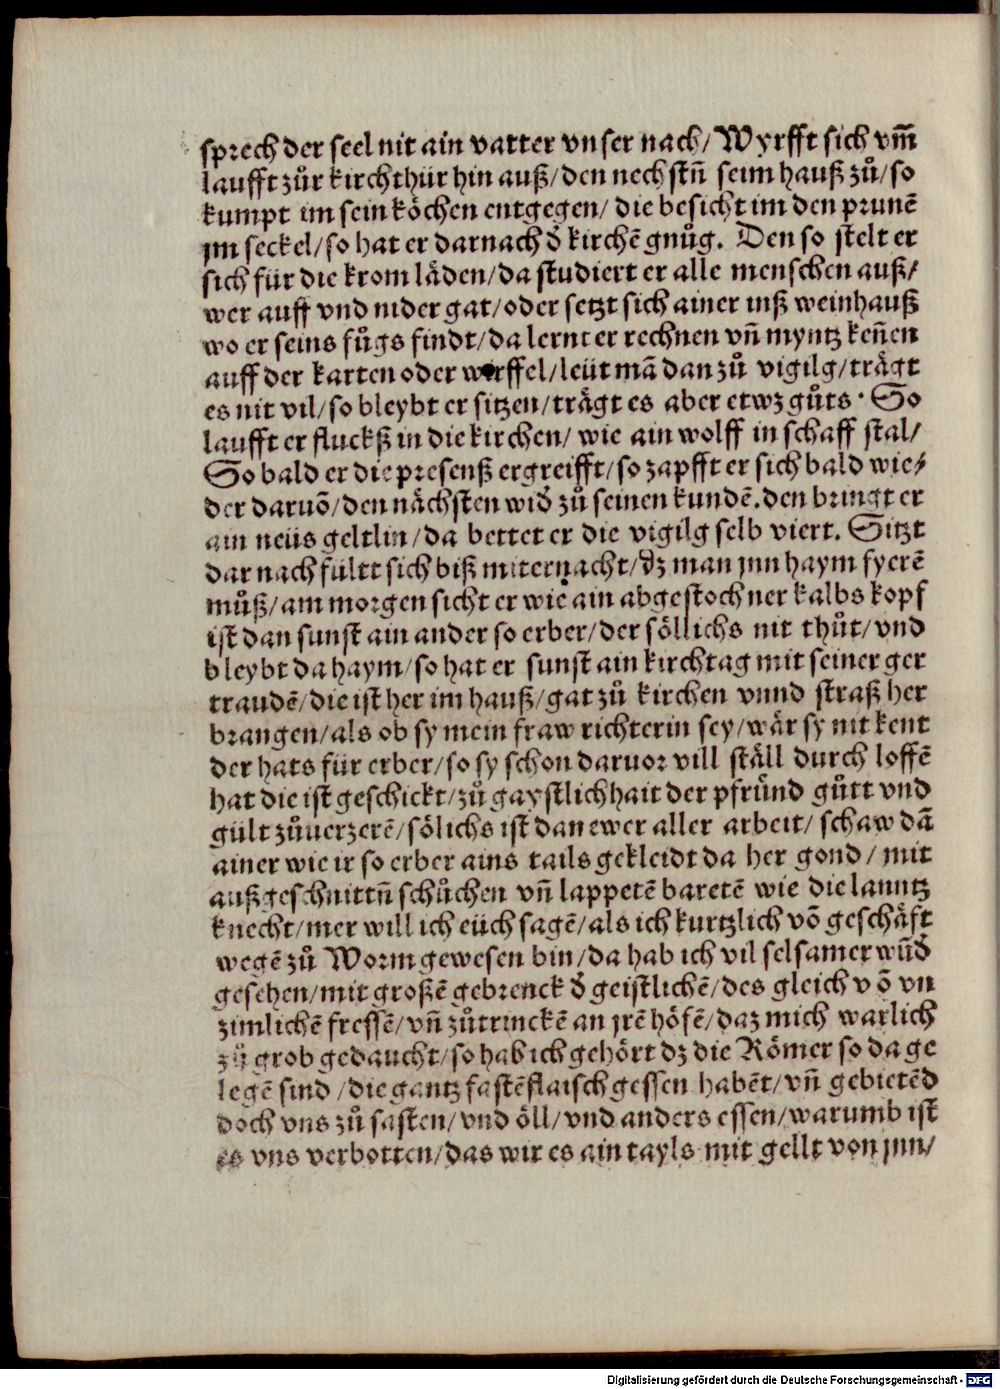 sprech der seel nit ain vatter vnser nach/ Wyrfft sich vm̃
laufft zůr kirchthür hin auß/ den nechstñ seim hauß zů/ so
kumpt im sein köchen entgegen/ die besicht im den prunẽ
jm seckel/ so hat er darnach d̕ kirchẽ gnůg. Den so stelt er
sich für die krom läden/ da studiert er alle menschen auß/
wer auff vnd nider gat/ oder setzt sich ainer inß weinhauß
wo er seins fůgs findt/ da lernt er rechnen vñ myntz keñen
auff der karten oder wirffel/ leüt mã dan zů vigilg/ trägt
es nit vil/ so bleybt er sitzen/ trägt es aber etwz gůts. So
laufft er fluckß in die kirchen/ wie ain wolff in schaff stal/
So bald er die presenß ergreifft/ so zapfft er sich bald wie/
der daruõ/ den nächsten wid̕ zů seinen kundẽ. den bringt er
ain neüs geltlin/ da bettet er die vigilg selb viert. Sitzt
darnach fültt sich biß miternacht/ dz man jnn haym fyerẽ
můß/ am morgen sicht er wie ain abgestochner kalbs kopf
ist dan sunst ain ander so erber/ der söllichs nit thůt/ vnd
bleybt da haym/ so hat er sunst ain kirchtag mit seiner ger
traudẽ/ die ist her im hauß/ gat zů kirchen vnnd straß her
brangen/ als ob sy mein fraw richterin sey/ wär sy nit kent
der hats für erber/ so sy schon daruor vill ställ durch loffẽ
hat die ist geschickt/ zů gaystlichhait der pfründ gůtt vnd
gült zůuerzerẽ/ sölichs ist dan ewer aller arbeit/ schaw dã
ainer wie ir so erber ains tails gekleidt da her gond/ mit
außgeschnittñ schůchen vñ lappetẽ baretẽ wie die lanntz
knecht/ mer will ich eüch sagẽ/ als ich kurtzlich võ geschäft
wegẽ zů Worm gewesen bin/ da hab ich vil selsamer wũd̕
gesehen/ mit großẽ gebrenck d̕ geistlichẽ/ des gleich võ vn
zimlichẽ fressẽ/ vñ zůtrinckẽ an jrẽ höfẽ/ daz mich warlich
zů grob gedaucht/ so hab ich gehört dz die Römer so da ge
legẽ sind/ die gantz fastẽ flaisch gessen habẽt/ vñ gebietẽd
doch vns zů fasten/ vnd öll/ vnd anders essen/ warumb ist
es vns verbotten/ das wir es ain tayls mit gellt von jnn/
Digitalisierung gefördert durch die Deutsche Forschungsgemeinschaft - DFG